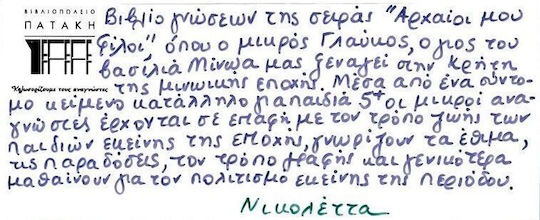 ΒΙΒΛΙΟΠΩΛΕΙΟ
ΠΑΤΑΚΗ
Καλωσορίζουμε τους αναγνώστες
Βιβλίο γνώσεων της σειράς "Αρχαίοι μου
φίλοι" όπου ο μικρός Γλαύκος, ο γιος του
βασιλιά Μίνωα μας ξεναγεί στην Κρήτη
της μινωικής εποχής. Μέσα από ένα σύντο-
μο κείμενο κατάλληλο για παιδιά 5+ οι μικροί ανα-
γνώστες έρχονται σε επαφή με τον τρόπο ζωής των
παιδιών εκείνης της εποχής, γνωρίζουν τα έθιμα,
τις παραδόσεις, τον τρόπο γραφής και γενικότερα
μαθαίνουν για τον πολιτισμό εκείνης της περιόδου.
Νικολέττα